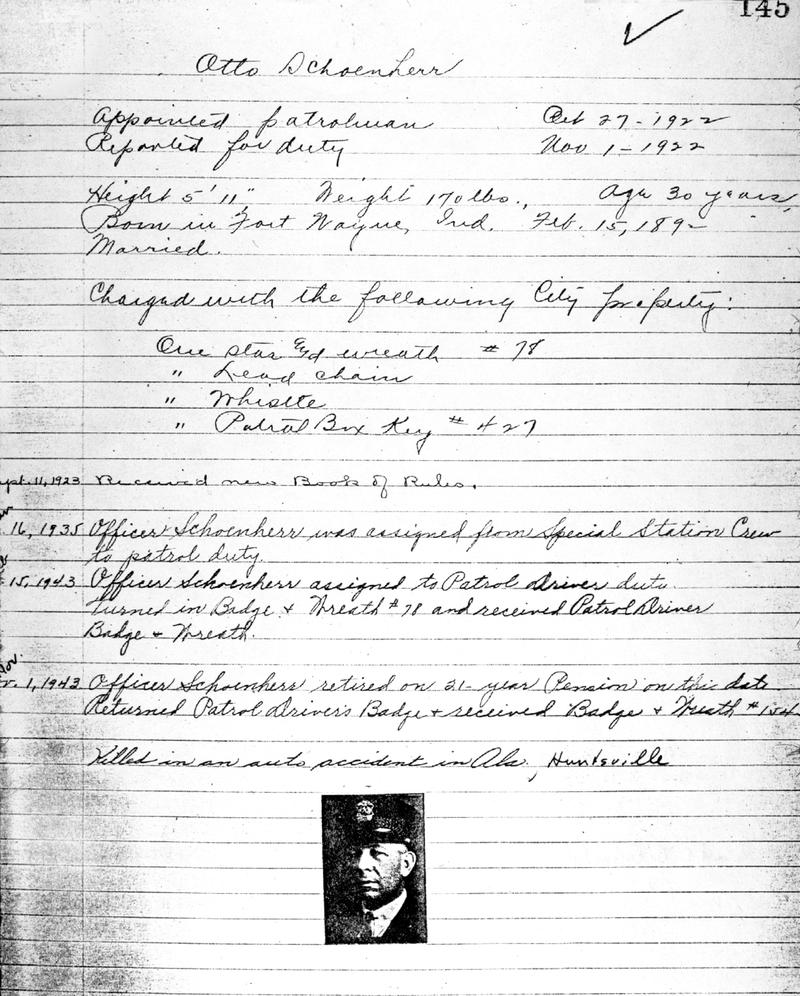 145
Otto Schoenherr
Appointed patrolman Oct 27-1922
Reported for duty Nov 1-1922
Height 5' 11" Weight 170 lbs., Age 30 years,
Born in Fort Wayne, Ind. Feb. 15, 1892
Married.
Charged with the following City property:
One star and wreath # 78
" Lead chain
" Whistle
" Patrol Box Key # 427
ept. 11, 1923 Received new Book of Rules.
16, 1935 Officer Schoenherr was assigned from Special Station Crew
to patrol duty.
15, 1943 Officer Schoenherr assigned to Patrol Driver duty.
turned in Badge & Wreath # 78 and received Patrol Driver
Badge & Wreath.
Nov.
1, 1943 Officer Schoenherr retired on 21-year Pension on this date
Returned Patrol Driver's Badge & received Badge & Wreath # 154
Killed in an auto accident in Ala., Huntsville